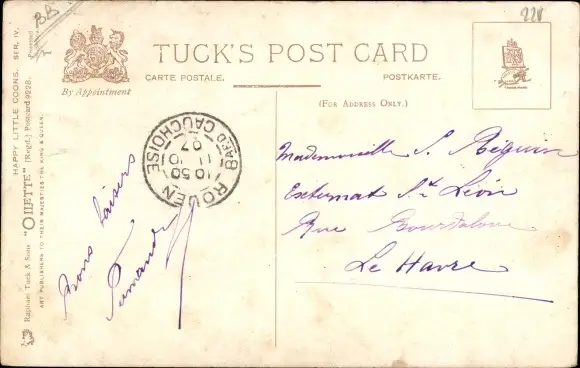 BB
221
TUCK'S POST CARD
CARTE POSTALE.
POSTKARTE.
By Appointment
(FOR ADDRESS ONLY.)
HAPPY LITTLE COONS. SER. IV.
"OILETTE" [Regd.] Postcard 9228.
Raphael Tuck & Sons'
ART PUBLISHERS TO THEIR MAJESTIES THE KING & QUEEN.
ROUEN
Bard CAUCHOISE
10 50
11
07
Mademoiselle S. Béguin
Externat St Léon
Rue Bourdaloue
Le Havre
bons baisers